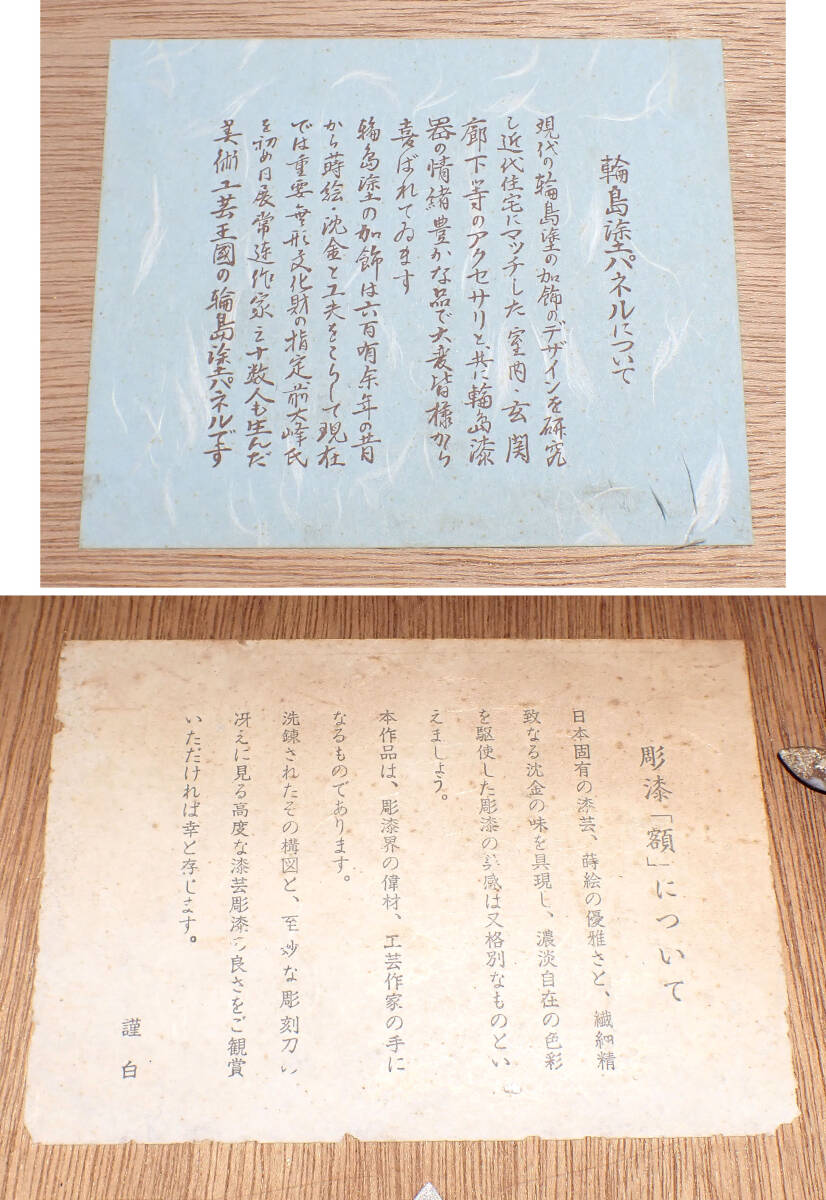 輪島塗パネルについて
現代の輪島塗の加飾のデザインを研究
し近代住宅にマッチした室内・玄関
廊下等のアクセサリと共に輪島漆
器の情緒豊かな品で大変皆様から
喜ばれてゐます
輪島塗の加飾は六百有余年の昔
から蒔絵・沈金と工夫をこらして現在
では重要無形文化財の指定、前大峰氏
を初め日展常連作家三十数人も生んだ
美術工芸王國の輪島塗パネルです
彫漆「額」について
日本固有の漆芸、蒔絵の優雅さと、繊細精
致なる沈金の味を具現し、濃淡自在の色彩
を駆使した彫漆の美感は又格別なものとい
えましょう。
本作品は、彫漆界の偉材、工芸作家の手に
なるものであります。
洗錬されたその構図と、至妙な彫刻刀の
冴えに見る高度な漆芸彫漆の良さをご観賞
いただければ幸と存じます。
謹白